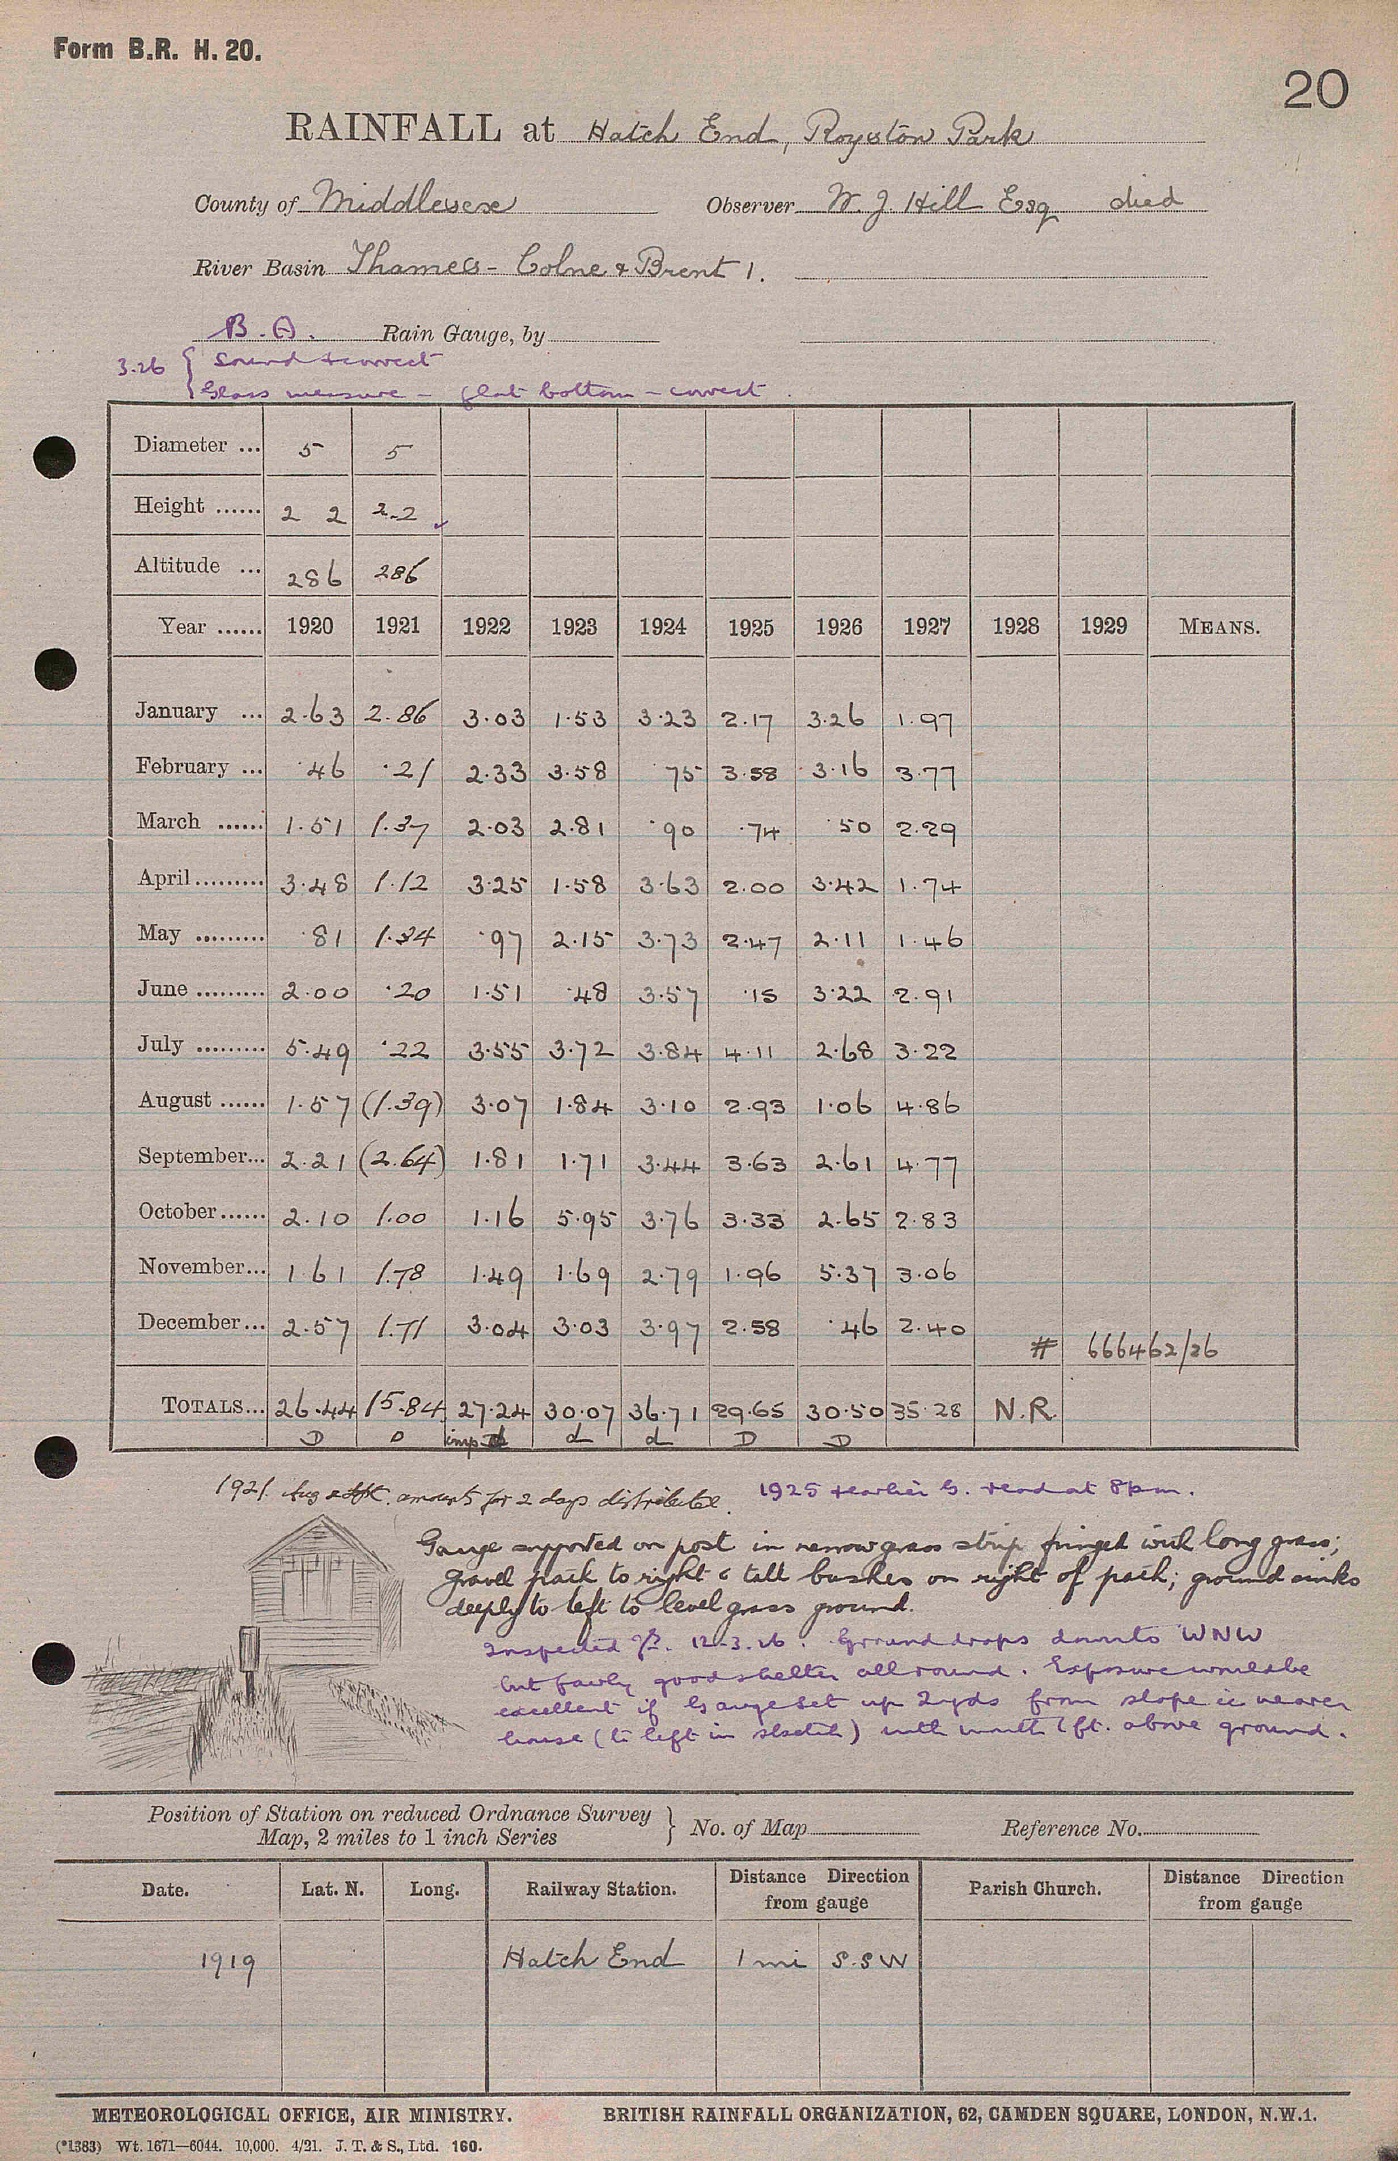 Form B.R. H. 20.
20
RAINFALL at Hatch End, Royston Park
County of Middlesex Observer W. J. Hill Esq died
River Basin Thames - Colne & Brent 1.
B.A. Rain Gauge, by
3.26 { Sound & correct
Glass measure - flat bottom - correct.
Diameter ... 5 5
Height ...... 2 2 2-2
Altitude ... 286 286
Year ...... 1920 1921 1922 1923 1924 1925 1926 1927 1928 1929 MEANS.
January ... 2.63 2.86 3.03 1.53 3.23 2.17 3.26 1.97
February ... .46 .21 2.33 3.58 .75 3.58 3.16 3.77
March ...... 1.51 1.37 2.03 2.81 .90 .74 .50 2.29
April......... 3.48 1.12 3.25 1.58 3.63 2.00 3.42 1.74
May ......... .81 1.34 .97 2.15 3.73 2.47 2.11 1.46
June ......... 2.00 .20 1.51 .48 3.57 .15 3.22 2.91
July ......... 5.49 .22 3.55 3.72 3.84 4.11 2.68 3.22
August ...... 1.57 (1.39) 3.07 1.84 3.10 2.93 1.06 4.86
September... 2.21 (2.64) 1.81 1.71 3.44 3.63 2.61 4.77
October...... 2.10 1.00 1.16 5.95 3.76 3.33 2.65 2.83
November... 1.61 1.78 1.49 1.69 2.79 1.96 5.37 3.06
December... 2.57 1.71 3.04 3.03 3.97 2.58 .46 2.40
# 666462/26
TOTALS... 26.44 15.84 27.24 30.07 36.71 29.65 30.50 35.28 N.R.
D D imp d d d D D
1921. Aug & Sept. amounts for 2 days distributed. 1925 & earlier G. read at 8pm.
Gauge supported on post in narrow grass strip fringed with long grass;
gravel path to right & tall bushes on right of path; ground sinks
deeply to left to level grass ground.
Inspected 12-3.26. Ground drops down to WNW
but fairly good shelter all round. Exposure would be
excellent if Gauge set up 2 yds from slope ie nearer
house (to left in sketch) with mouth 1 ft. above ground.
Position of Station on reduced Ordnance Survey
Map, 2 miles to 1 inch Series } No. of Map Reference No.
Date. Lat. N. Long. Railway Station. Distance Direction from gauge Parish Church. Distance Direction from gauge
1919 Hatch End 1 mi S.SW
METEOROLOGICAL OFFICE, AIR MINISTRY. BRITISH RAINFALL ORGANIZATION, 62, CAMDEN SQUARE, LONDON, N.W.1.
(*1383) Wt. 1671—6044. 10,000. 4/21. J. T. & S., Ltd. 160.